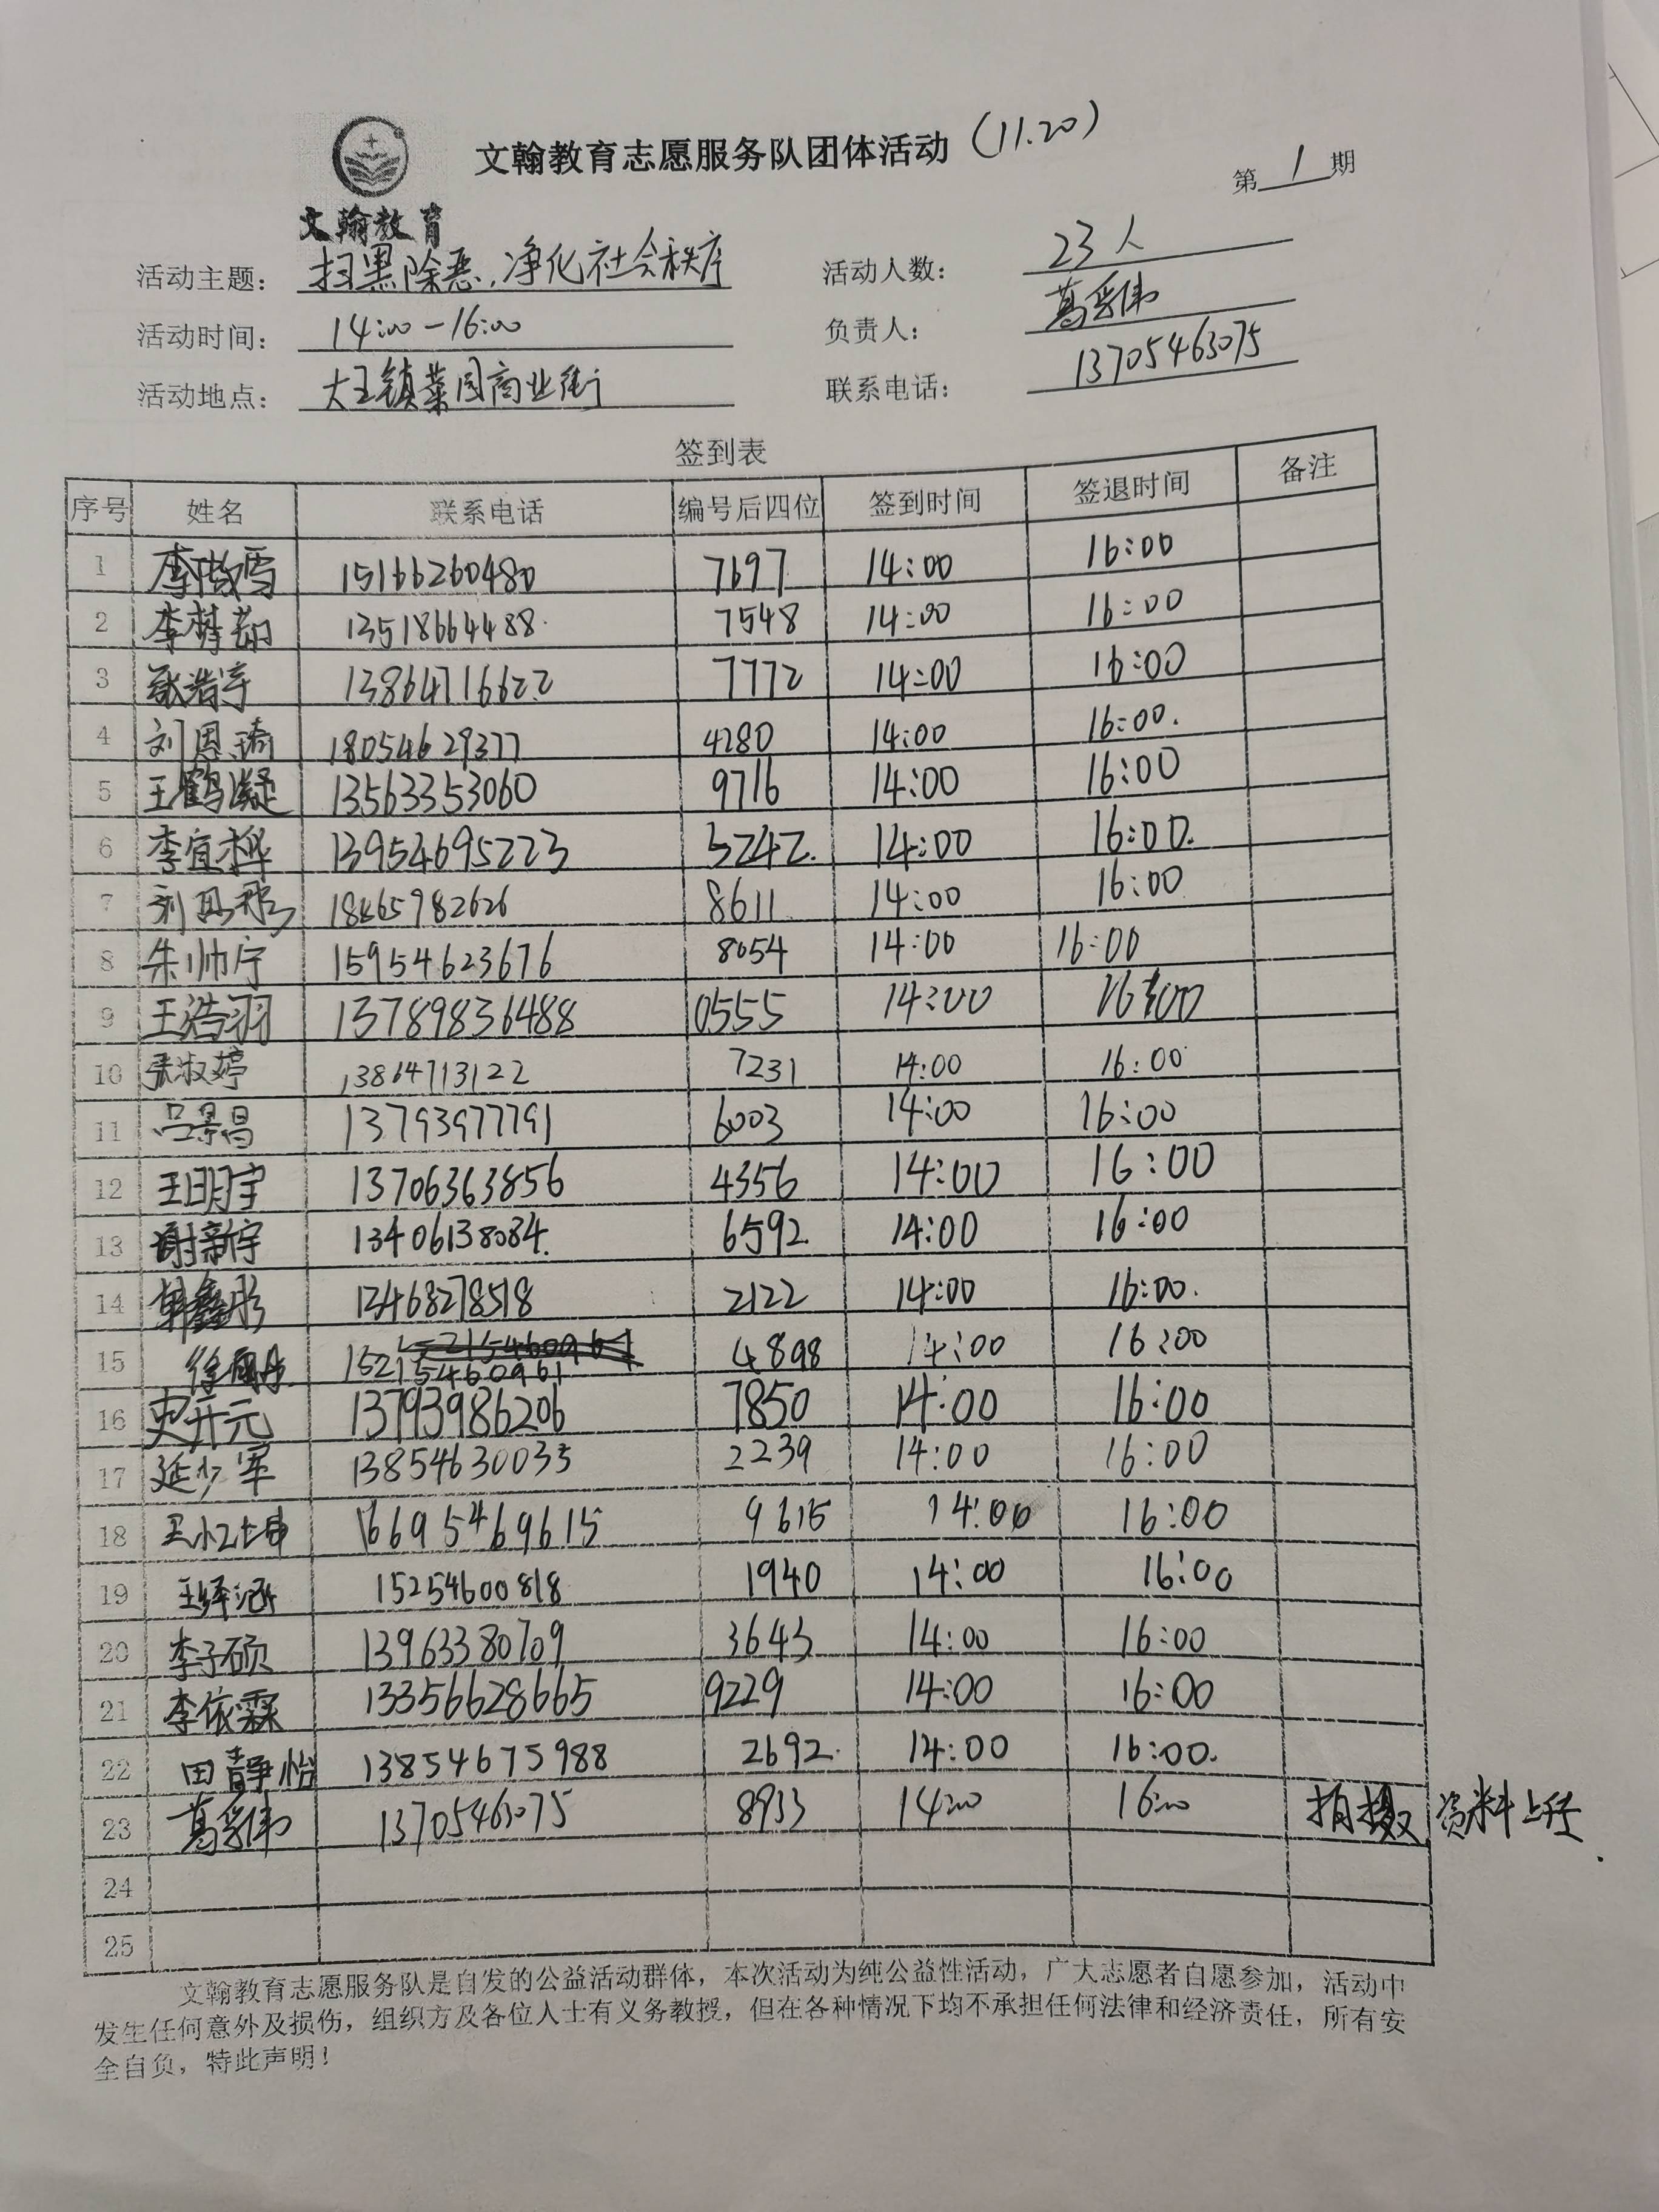 文翰教育志愿服务队团体活动 (11.20)
第 1 期
文翰教育
活动主题: 扫黑除恶,净化社会秩序 活动人数: 23人
活动时间: 14:00-16:00 负责人: 葛学伟
活动地点: 大王镇菜园商业街 联系电话: 13705463075
签到表
序号 姓名 联系电话 编号后四位 签到时间 签退时间 备注
1 李 雪 15166260480 7697 14:00 16:00
2 李梦 13518664488 7548 14:00 16:00
3 张浩宇 13864716622 7772 14:00 16:00
4 刘恩琦 18054629377 4280 14:00 16:00.
5 王鹤凝 13563353060 9716 14:00 16:00
6 李宜桦 13954695223 3242. 14:00 16:00.
7 刘 彤 18465782626 8611 14:00 16:00
8 朱帅宇 15954623676 8054 14:00 16:00
9 王浩羽 13789836488 0555 14:00 16:00
10 张淑婷 13864713122 7231 14:00 16:00
11 吕景昌 13793977791 6003 14:00 16:00
12 王明宇 13706363856 4356 14:00 16:00
13 谢新宇 13406138084. 6592 14:00 16:00
14 韩鑫彤 13468278518 2122 14:00 16:00.
15 徐 15215460961 4898 14:00 16:00
16 史开元 13793986206 7850 14:00 16:00
17 延少军 13854630035 2239 14:00 16:00
18 王 坤 16695469615 9615 14:00 16:00
19 王绎涵 15254600818 1940 14:00 16:00
20 李子硕 13963380709 3643 14:00 16:00
21 李依霖 13356628665 9229 14:00 16:00
22 田静怡 13854675988 2692. 14:00 16:00.
23 葛学伟 13705463075 8933 14:00 16:00 拍摄 资料上传
24
25
文翰教育志愿服务队是自发的公益活动群体，本次活动为纯公益性活动，广大志愿者自愿参加，活动中
发生任何意外及损伤，组织方及各位人士有义务教授，但在各种情况下均不承担任何法律和经济责任，所有安
全自负，特此声明!